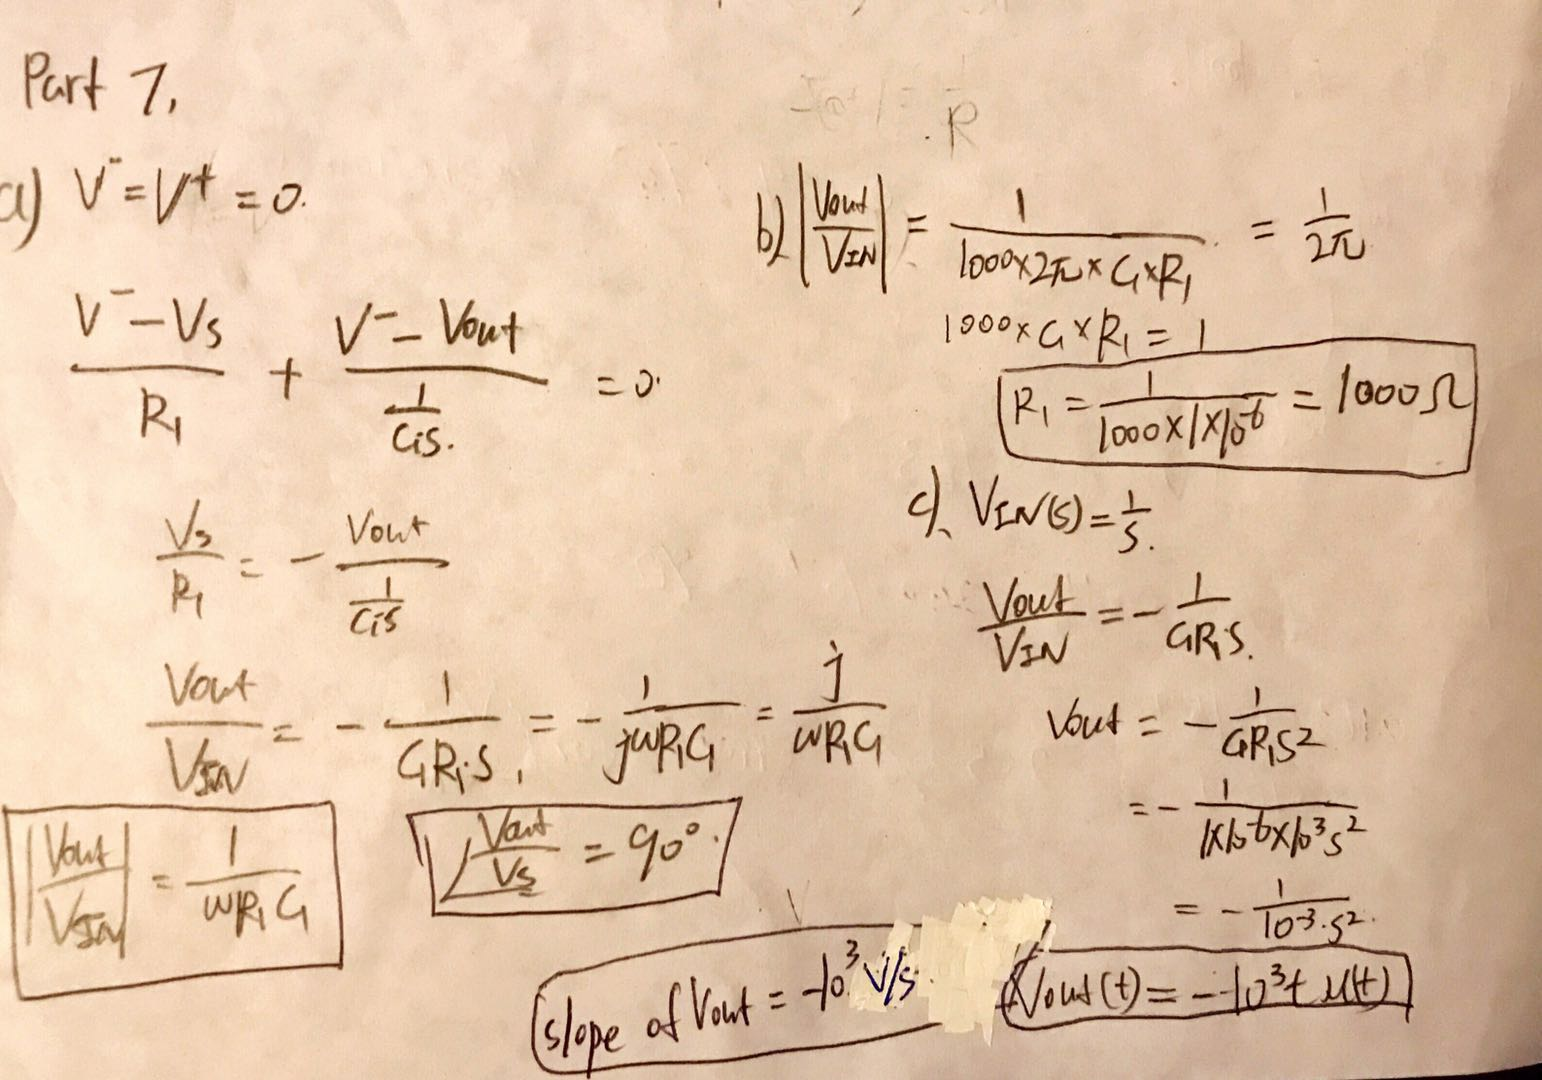 Part 7.
a) V⁻ = V⁺ = 0.
(V⁻ - Vs)/R₁ + (V⁻ - Vout)/(1/(C₁s.)) = 0.
Vs/R₁ = - Vout/(1/(C₁s))
Vout/VIN = - 1/(C₁R₁·s), = - 1/(jωR₁C₁) = j/(ωR₁C₁)
|Vout/VIN| = 1/(ωR₁C₁)
∠Vout/Vs = 90°.
b) |Vout/VIN| = 1/(1000×2π×C₁×R₁) = 1/2π
1000×C₁×R₁ = 1
R₁ = 1/(1000×1×10⁻⁶) = 1000Ω
c). VIN(s) = 1/s.
Vout/VIN = - 1/(C₁R₁s.)
Vout = - 1/(C₁R₁s²)
= - 1/(1×10⁻⁶×10³s²)
= - 1/(10⁻³·s².)
slope of Vout = -10³ V/s.
Vout(t) = -10³t u(t)
R